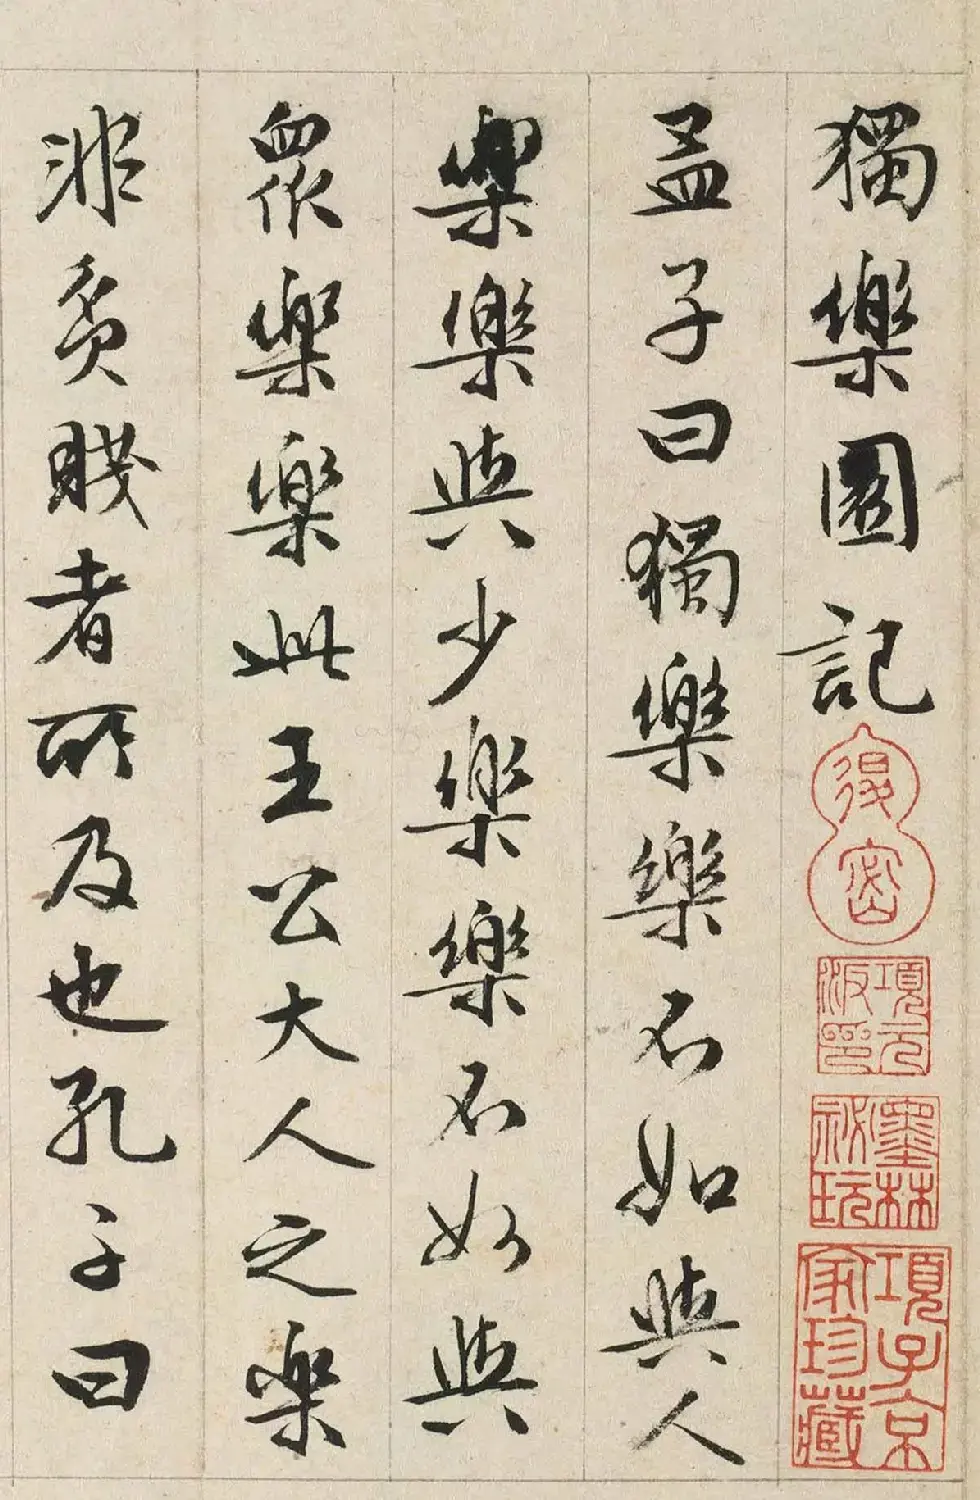 獨樂園記
孟子曰獨樂樂不如與人
樂樂與少樂樂不如與
眾樂樂此王公大人之樂
非貧賤者所及也孔子曰
項元汴印
墨林秘玩
項子京家珍藏